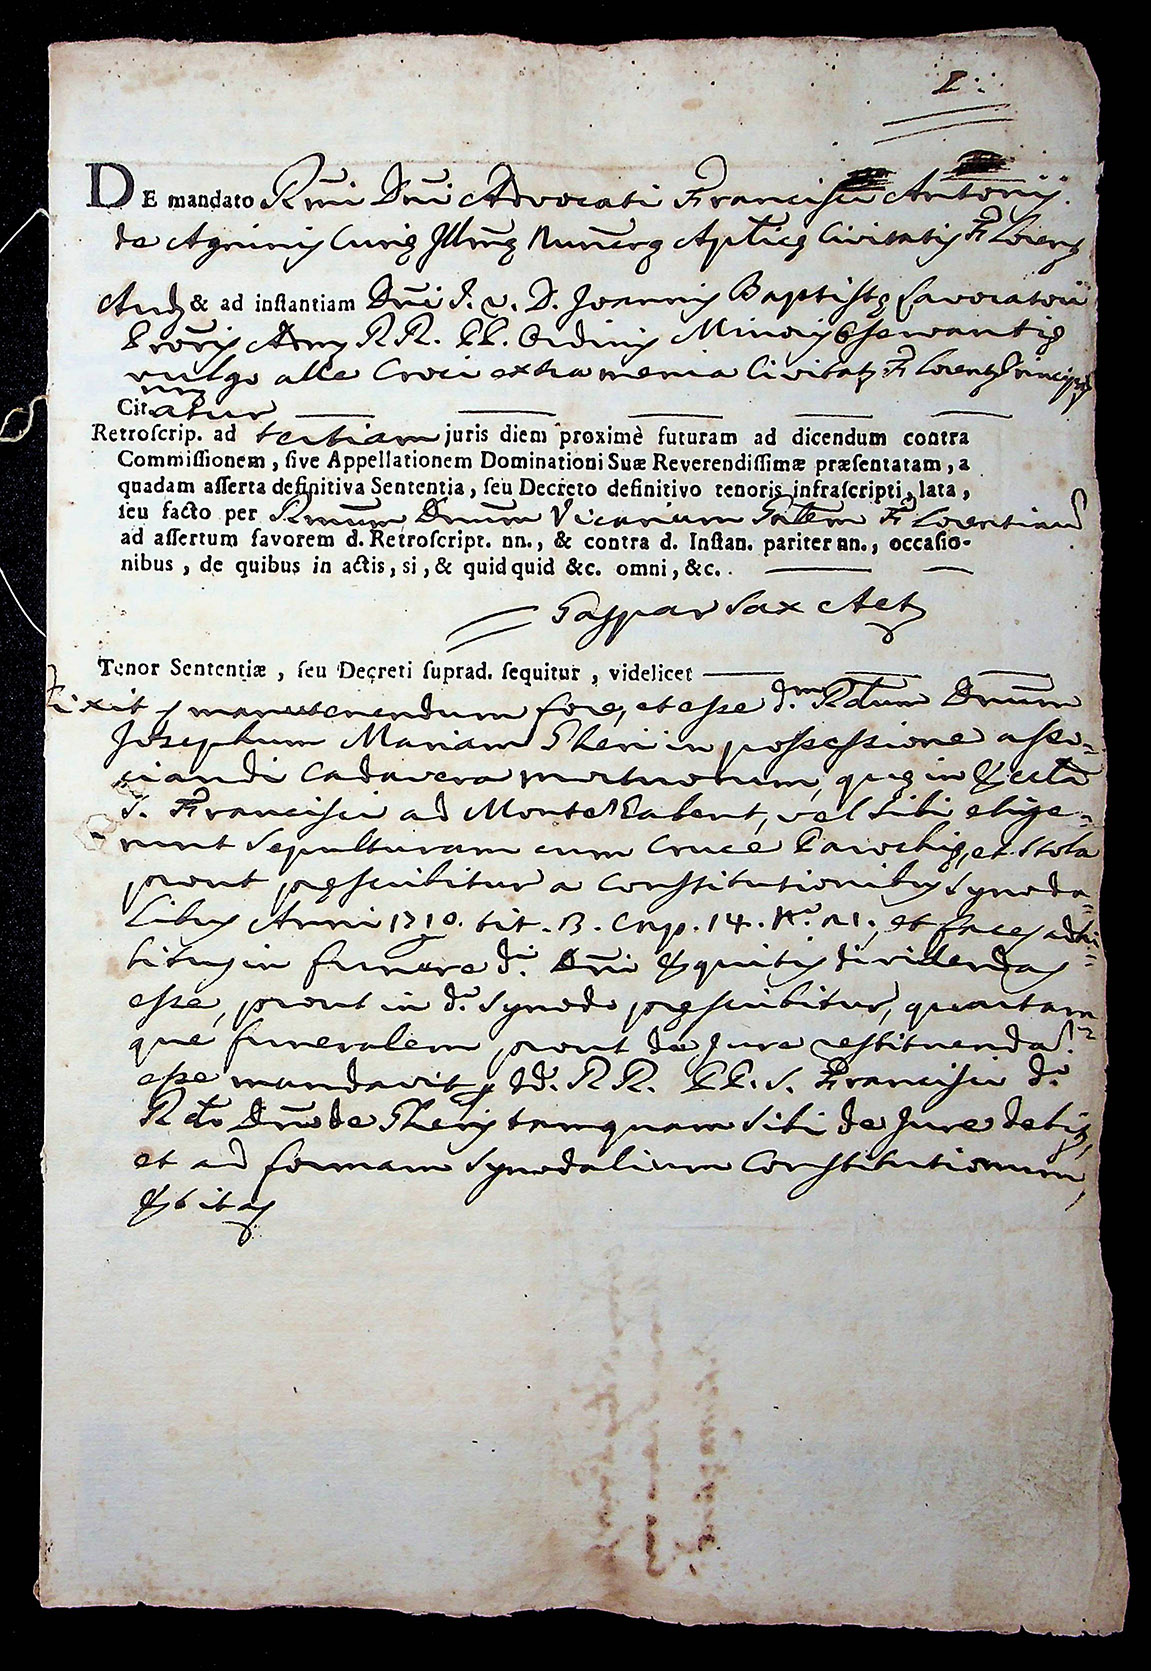 I:
DE mandato Rmi Dni Advocati Francisci Antonij
de Agninis Curiæ Illmæ Nunræ Aplicæ Civitatis Florentæ
Audis & ad instantiam Dni J. U. D. Joannis Baptistæ Lavoratorii
Proris Arny RR. PP. Ordinis Minoris Observantiæ
vulgo alle Croci extra menia Civitatis Florentæ Principalis
Citatur
Retroscrip. ad tertiam juris diem proximè futuram ad dicendum contra
Commissionem, sive Appellationem Dominationi Suæ Reverendissimæ præsentatam, a
quadam asserta definitiva Sententia, seu Decreto definitivo tenoris infrascripti, lata,
seu facto per Rmum Dnum Vicarium Gnlem Florentinum
ad assertum favorem d. Retroscript. nn., & contra d. Instan. pariter nn., occasio-
nibus, de quibus in actis, si, & quidquid &c. omni, &c.
Gaspar Sax Act
Tenor Sententiæ, seu Decreti suprad. sequitur, videlicet
Dixit manutenendum fore, et esse d.m Rdum Dnum
Josephum Mariam Gheri in possessione asso=
ciandi Cadavera mortuorum, quæ in Eccla
S. Francisci ad Monte habent, vel sibi elige=
runt Sepulturam cum Cruce Parochiæ, et Stola
prout præscribitur a Constitutionibus Synoda=
libus Anni 1710. tit. 13. Cap. 14. No. 21., et faces adhi=
bitas in funere di. Dni Equitis dividendas
esse, prout in da. Synodo præscribitur, quartam=
que funeralem prout de Jure restituendam
esse mandavit p dd. RR. PP. S. Francisci do.
Rdo Dno de Gherijs tamquam Sibi de Jure debitam,
et ad formam Synodalium Constitutionum,
& ita